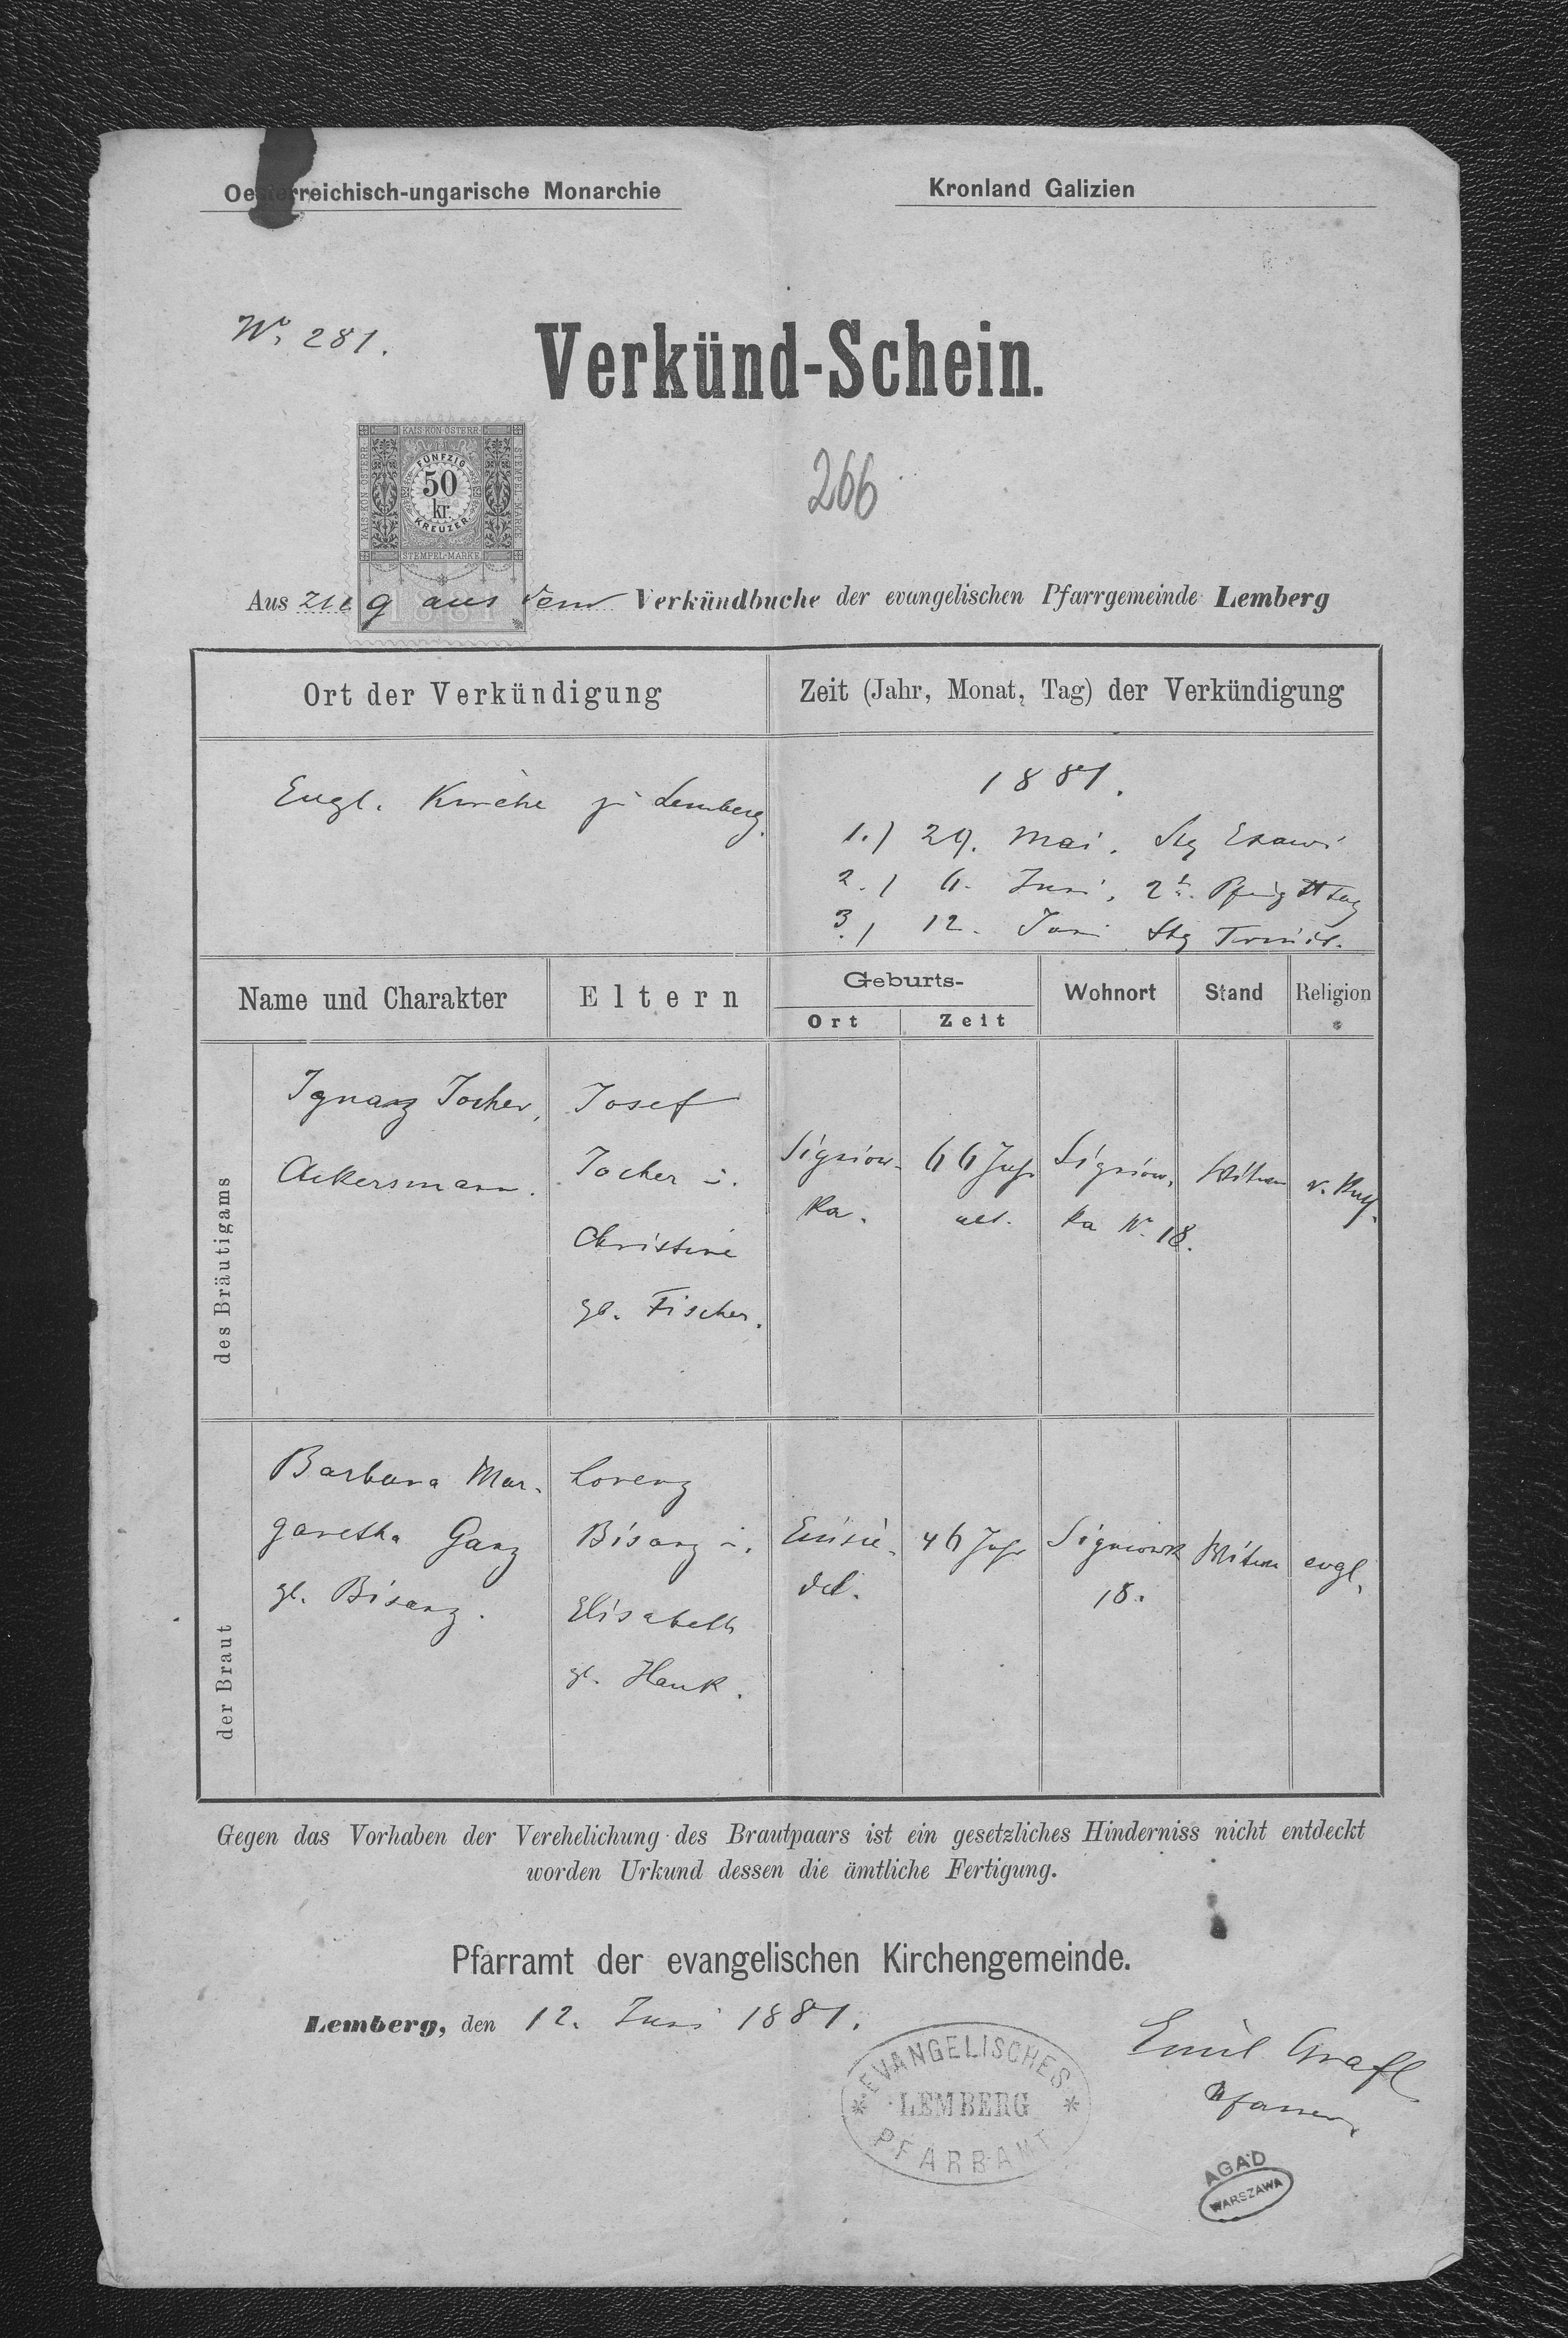 Oesterreichisch-ungarische Monarchie
Kronland Galizien
Nº 281.
Verkünd-Schein.
KAIS·KÖN·ÖSTERR·
KAIS·KÖN·ÖSTERR·
STEMPEL-MARKE
FÜNFZIG
50
kr.
KREUZER
STEMPEL-MARKE
266
Auszug aus dem Verkündbuche der evangelischen Pfarrgemeinde Lemberg
Ort der Verkündigung
Zeit (Jahr, Monat, Tag) der Verkündigung
Evgl. Kirche zu Lemberg.
1881.
1.) 29. Mai. Stg Exaudi
2.) 6. Juni, 2t. Pfingsttag
3.) 12. Juni Stg Trinit.
Name und Charakter
Eltern
Geburts-
Ort
Zeit
Wohnort
Stand
Religion
des Bräutigams
Ignanz Jocher,
Ackersmann.
Josef
Jocher u.
Christine
gb. Fischer.
Signiow-
ka.
66 Jahr
alt.
Signiow-
ka Nº 18.
Witwer
der Braut
Barbara Mar-
garetha Ganz
gb. Bisanz.
Lorenz
Bisanz u.
Elisabeth
gb. Hauk.
Einsie-
del.
46 Jahr
Signiowk
18.
Witwe
evgl.
Gegen das Vorhaben der Verehelichung des Brautpaars ist ein gesetzliches Hinderniss nicht entdeckt
worden Urkund dessen die ämtliche Fertigung.
Pfarramt der evangelischen Kirchengemeinde.
Lemberg, den 12. Juni 1881.
EVANGELISCHES
LEMBERG
PFARRAMT
Emil Grafl
Pfarrer
AGAD
WARSZAWA